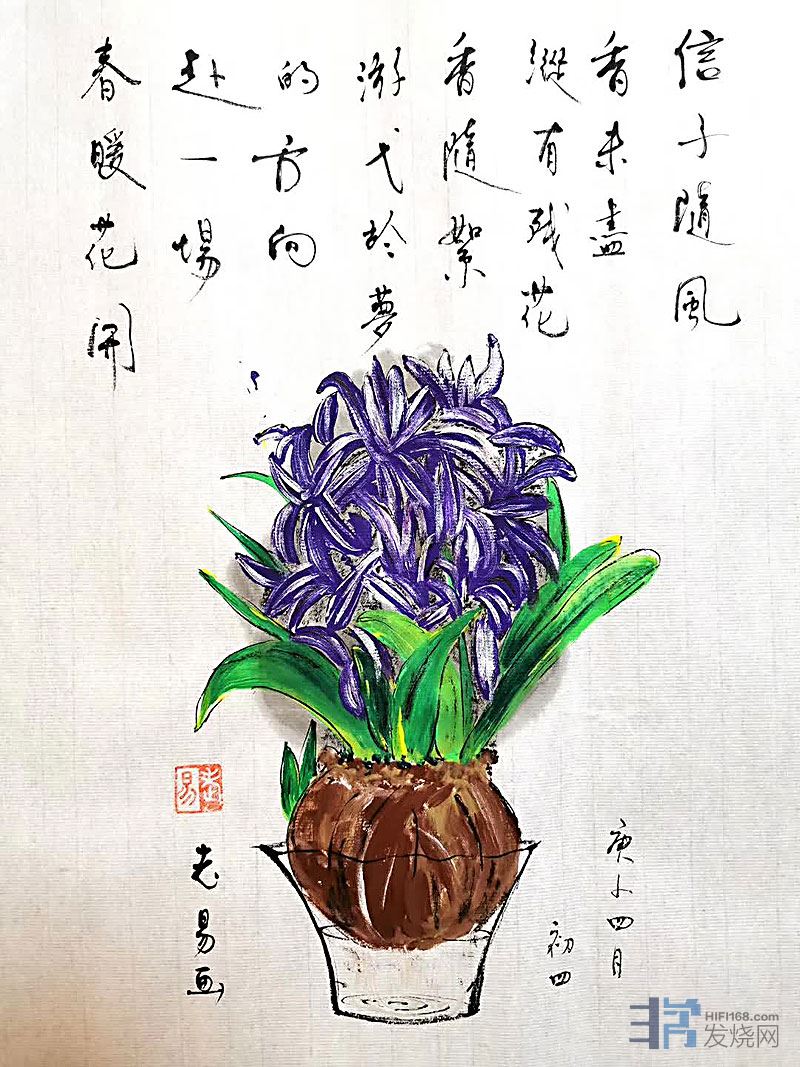 信子隨風
香未盡
縱有残花
香隨絮
游弋於夢
的方向
赴一場
春暖花開
庚子四月
初四
老易画
老易
HIFI168.com
发烧网